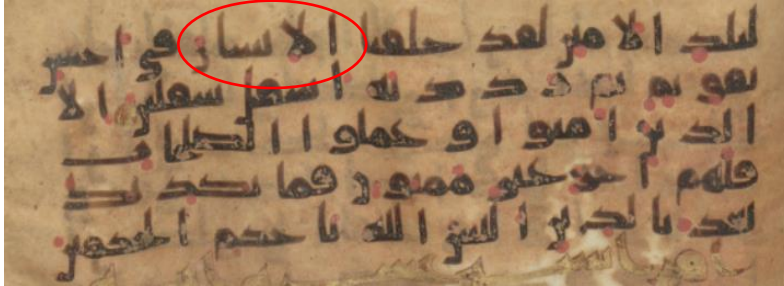 لبلد الامين لقد خلقنا الانسان في احسن
تقويم ثم رددنه اسفل سفلين الا
الذين امنوا وعملوا الصلحت
فلهم اجر غير ممنون فما يكذبك
بعد بالدين اليس الله باحكم الحكمين